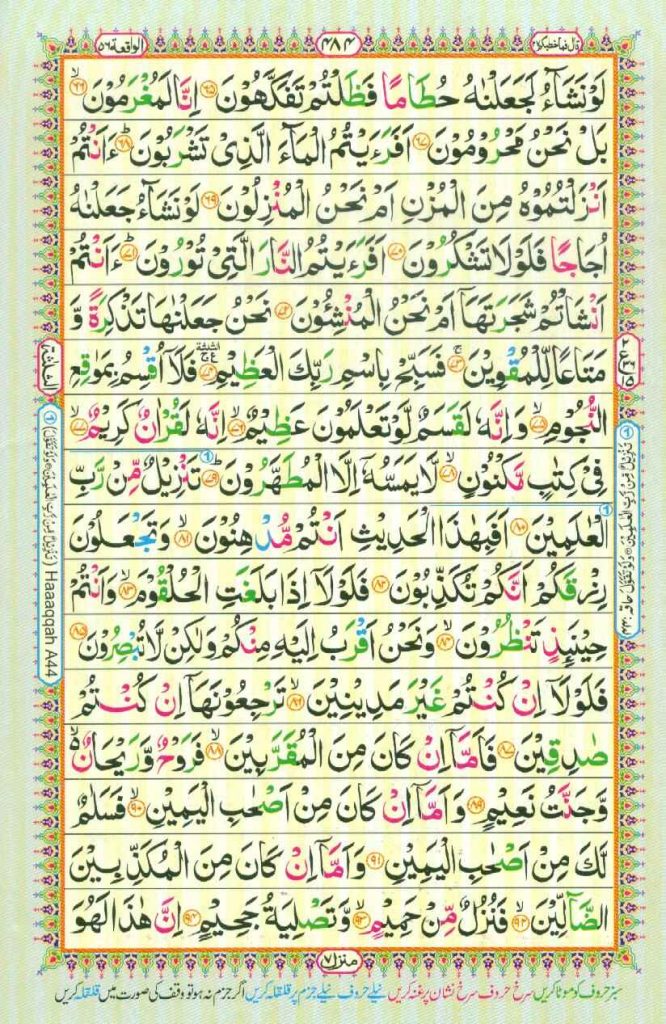 قال فما خطبكم ٢٧
٤٨٤
الواقعة ٥٦
لَوْ نَشَآءُ لَجَعَلْنٰهُ حُطَامًا فَظَلْتُمْ تَفَكَّهُوْنَ ﴿٦٥﴾ اِنَّا لَمُغْرَمُوْنَ ﴿٦٦﴾
بَلْ نَحْنُ مَحْرُوْمُوْنَ ﴿٦٧﴾ اَفَرَءَيْتُمُ الْمَآءَ الَّذِيْ تَشْرَبُوْنَ ﴿٦٨﴾ ءَاَنْتُمْ
اَنْزَلْتُمُوْهُ مِنَ الْمُزْنِ اَمْ نَحْنُ الْمُنْزِلُوْنَ ﴿٦٩﴾ لَوْ نَشَآءُ جَعَلْنٰهُ
اُجَاجًا فَلَوْلَا تَشْكُرُوْنَ ﴿٧٠﴾ اَفَرَءَيْتُمُ النَّارَ الَّتِيْ تُوْرُوْنَ ﴿٧١﴾ ءَاَنْتُمْ
اَنْشَاْتُمْ شَجَرَتَهَآ اَمْ نَحْنُ الْمُنْشِـُٔوْنَ ﴿٧٢﴾ نَحْنُ جَعَلْنٰهَا تَذْكِرَةً وَّ
مَتَاعًا لِّلْمُقْوِيْنَ ﴿٧٣﴾ فَسَبِّحْ بِاسْمِ رَبِّكَ الْعَظِيْمِ ﴿٧٤﴾ فَلَآ اُقْسِمُ بِمَوٰقِعِ
النُّجُوْمِ ﴿٧٥﴾ وَاِنَّهٗ لَقَسَمٌ لَّوْ تَعْلَمُوْنَ عَظِيْمٌ ﴿٧٦﴾ اِنَّهٗ لَقُرْاٰنٌ كَرِيْمٌ ﴿٧٧﴾
فِيْ كِتٰبٍ مَّكْنُوْنٍ ﴿٧٨﴾ لَّا يَمَسُّهٗٓ اِلَّا الْمُطَهَّرُوْنَ ﴿٧٩﴾ تَنْزِيْلٌ مِّنْ رَّبِّ
الْعٰلَمِيْنَ ﴿٨٠﴾ اَفَبِهٰذَا الْحَدِيْثِ اَنْتُمْ مُّدْهِنُوْنَ ﴿٨١﴾ وَتَجْعَلُوْنَ
رِزْقَكُمْ اَنَّكُمْ تُكَذِّبُوْنَ ﴿٨٢﴾ فَلَوْلَآ اِذَا بَلَغَتِ الْحُلْقُوْمَ ﴿٨٣﴾ وَاَنْتُمْ
حِيْنَئِذٍ تَنْظُرُوْنَ ﴿٨٤﴾ وَنَحْنُ اَقْرَبُ اِلَيْهِ مِنْكُمْ وَلٰكِنْ لَّا تُبْصِرُوْنَ ﴿٨٥﴾
فَلَوْلَآ اِنْ كُنْتُمْ غَيْرَ مَدِيْنِيْنَ ﴿٨٦﴾ تَرْجِعُوْنَهَآ اِنْ كُنْتُمْ
صٰدِقِيْنَ ﴿٨٧﴾ فَاَمَّآ اِنْ كَانَ مِنَ الْمُقَرَّبِيْنَ ﴿٨٨﴾ فَرَوْحٌ وَّرَيْحَانٌ
وَّجَنَّتُ نَعِيْمٍ ﴿٨٩﴾ وَاَمَّآ اِنْ كَانَ مِنْ اَصْحٰبِ الْيَمِيْنِ ﴿٩٠﴾ فَسَلٰمٌ
لَّكَ مِنْ اَصْحٰبِ الْيَمِيْنِ ﴿٩١﴾ وَاَمَّآ اِنْ كَانَ مِنَ الْمُكَذِّبِيْنَ
الضَّآلِّيْنَ ﴿٩٢﴾ فَنُزُلٌ مِّنْ حَمِيْمٍ ﴿٩٣﴾ وَّتَصْلِيَةُ جَحِيْمٍ ﴿٩٤﴾ اِنَّ هٰذَا لَهُوَ
منزل ٧
سبز حروف کو موٹا کریں سرخ حروف سرخ نشان پر غنہ کریں نیلے حروف نیلے جزم پر قلقلہ کریں اگر جزم نہ ہو تو وقف کی صورت میں قلقلہ کریں
الثلثة
Haaaqqah A44 (تَنْزِيْلٌ مِّنْ رَّبِّ الْعٰلَمِيْنَ وَلَوْ تَقَوَّلَ)
تَنْزِيْلٌ مِّنْ رَّبِّ الْعٰلَمِيْنَ وَلَوْ تَقَوَّلَ حاقة